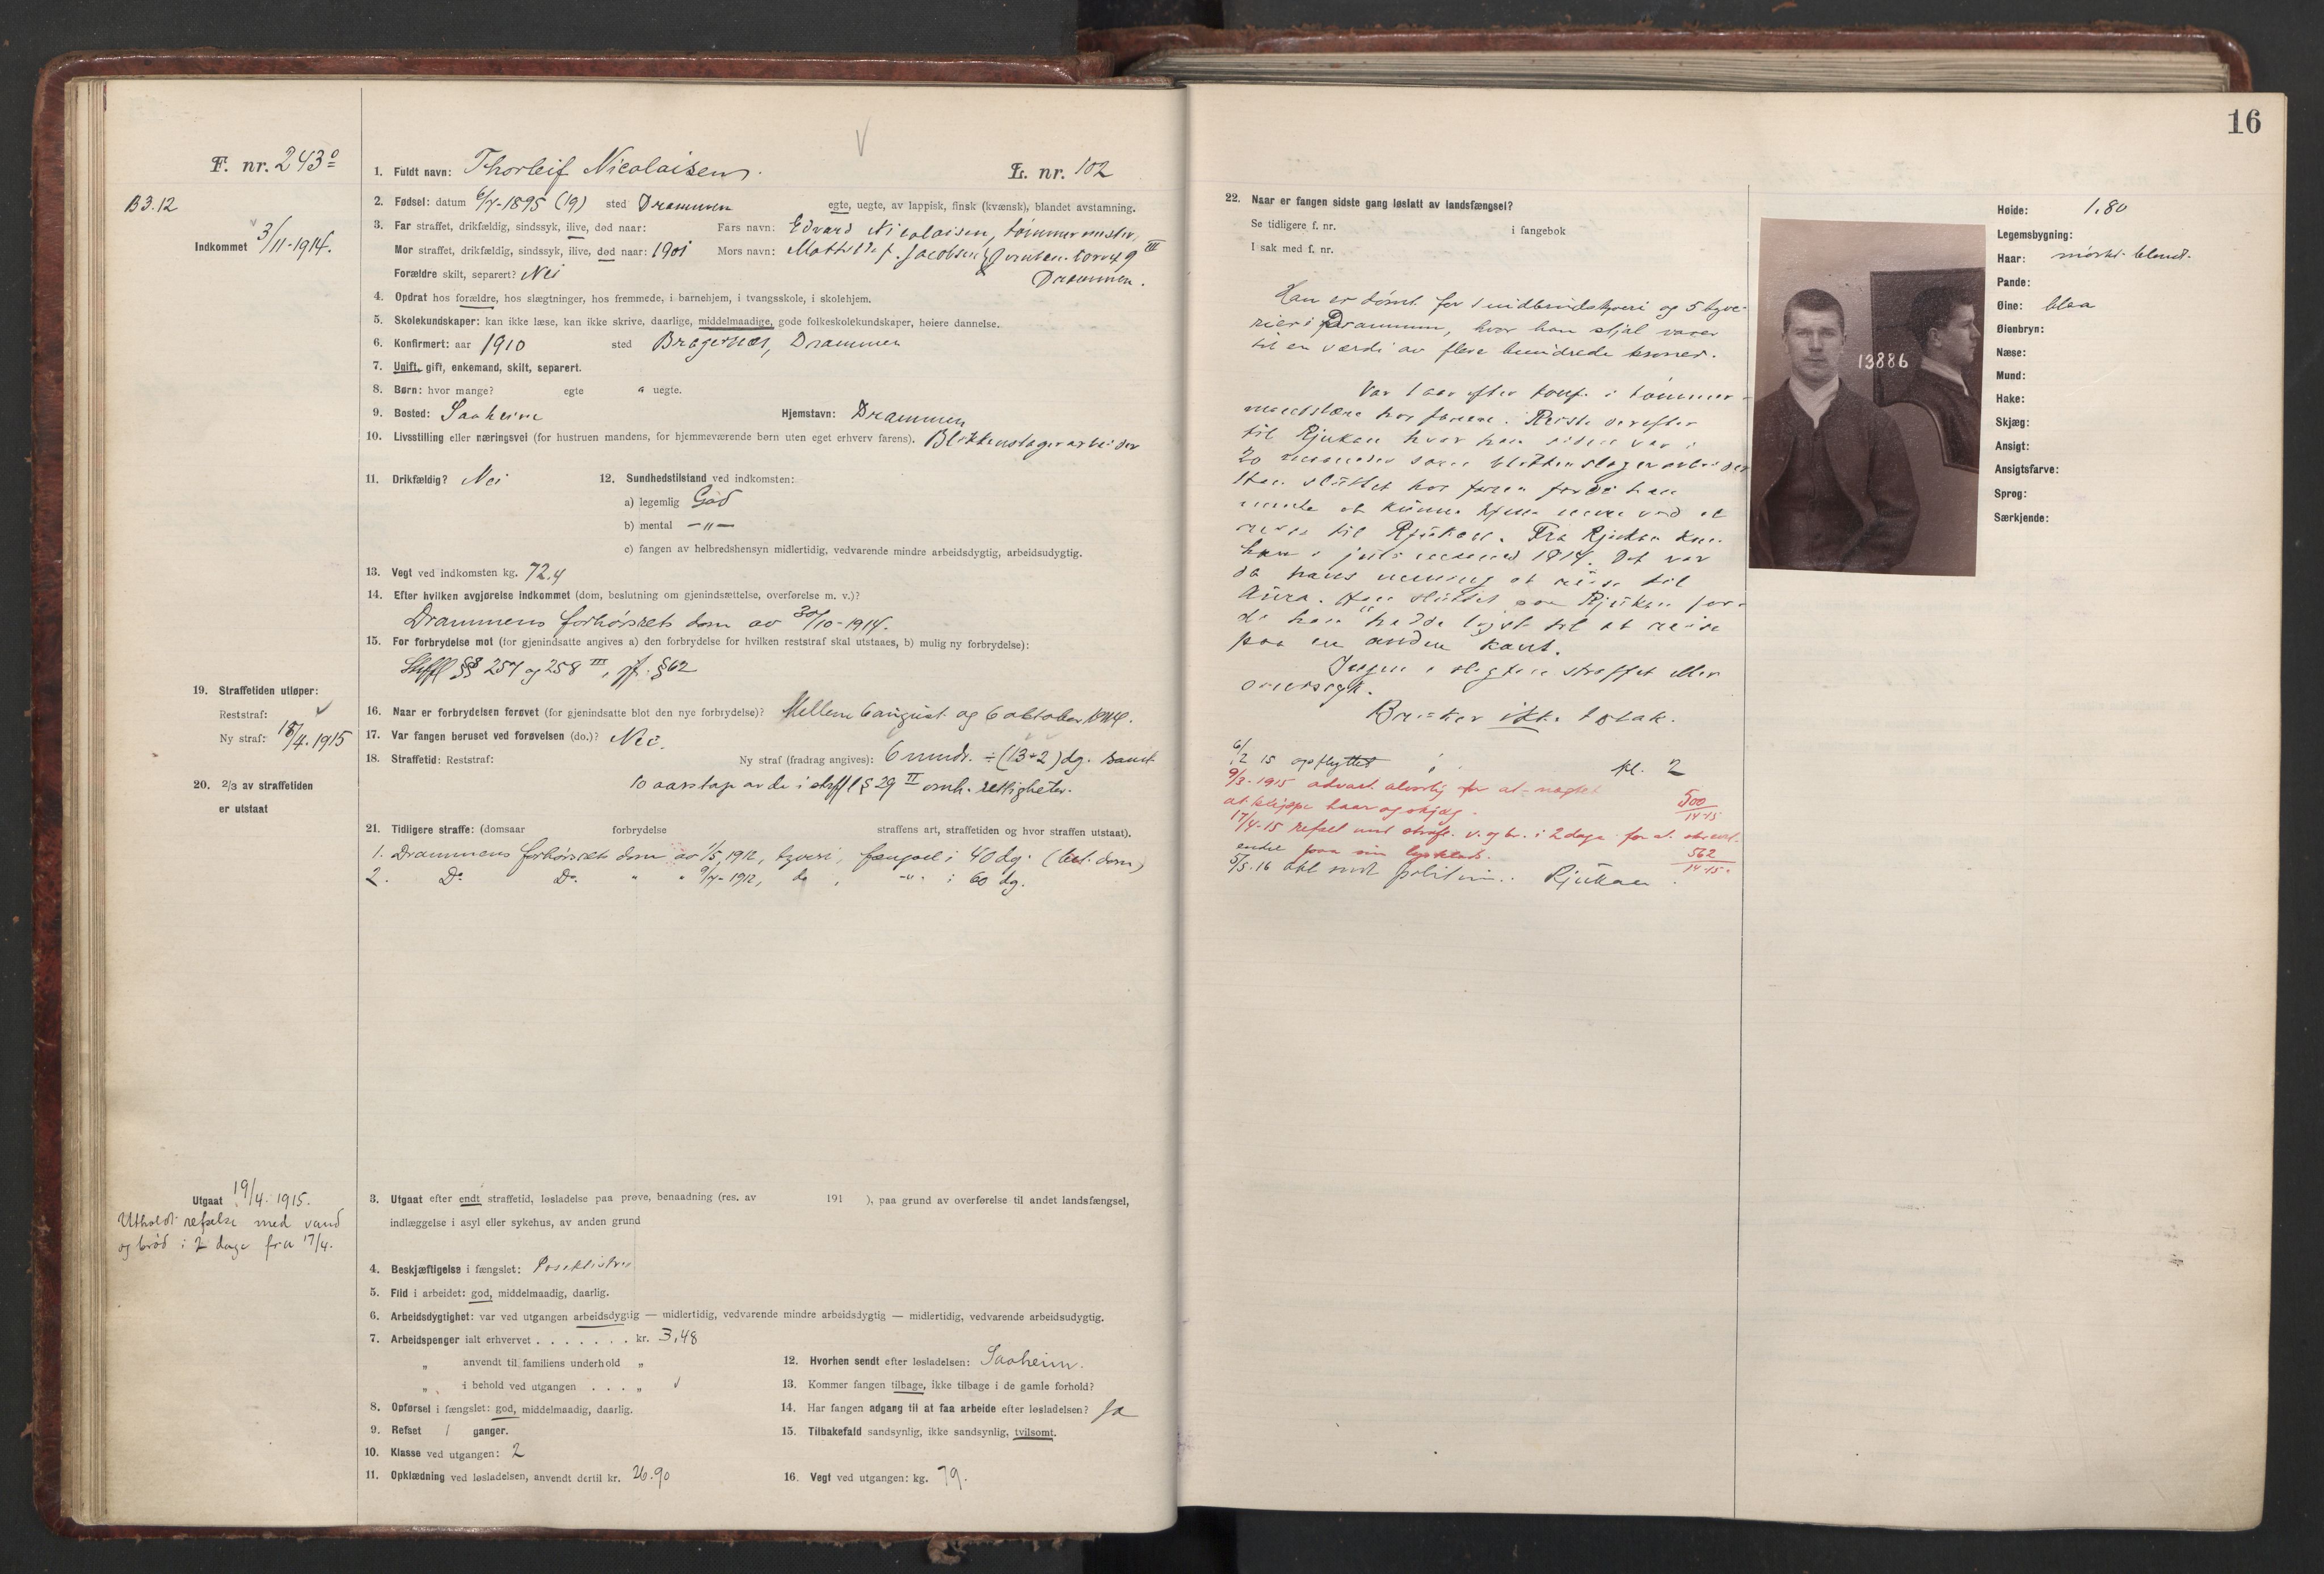 F. nr. 243º
B 3.12
Indkommet 3/11-1914.
1. Fuldt navn: Thorleif Nicolaisen. L. nr. 102
2. Fødsel: datum 6/7-1895 (19) sted Drammen egte, uegte, av lappisk, finsk (kvænsk), blandet avstamning.
3. Far straffet, drikfældig, sindssyk, ilive, død naar: Fars navn: Edvard Nicolaisen, tømmermester,
Mor straffet, drikfældig, sindssyk, ilive, død naar: 1901 Mors navn: f. Jacobsen, 9 III
Forældre skilt, separert? Nei Drammen.
4. Opdrat hos forældre, hos slægtninger, hos fremmede, i barnehjem, i tvangsskole, i skolehjem.
5. Skolekundskaper: kan ikke læse, kan ikke skrive, daarlige, middelmaadige, gode folkeskolekundskaper, høiere dannelse.
6. Konfirmert: aar 1910 sted Bragernæs, Drammen
7. Ugift, gift, enkemand, skilt, separert.
8. Børn: hvor mange? egte uegte.
9. Bosted: Saaheim Hjemstavn: Drammen
10. Livsstilling eller næringsvei (for hustruen mandens, for hjemmeværende børn uten eget erhverv farens). Blikkenslagerarbeider
11. Drikfældig? Nei 12. Sundhedstilstand ved indkomsten:
a) legemlig God
b) mental —"—
c) fangen av helbredshensyn midlertidig, vedvarende mindre arbeidsdygtig, arbeidsudygtig.
13. Vegt ved indkomsten kg. 72,4
14. Efter hvilken avgjørelse indkommet (dom, beslutning om gjenindsættelse, overførelse m. v.)?
Drammens forhørsrets dom av 30/10-1914.
15. For forbrydelse mot (for gjenindsatte angives a) den forbrydelse for hvilken reststraf skal utstaaes, b) mulig ny forbrydelse):
Strffl §§ 257 og 258 III, jf. § 62
19. Straffetiden utløper:
Reststraf:
Ny straf: 18/4.1915
16. Naar er forbrydelsen forøvet (for gjenindsatte blot den nye forbrydelse)? Mellem 6 august og 6 oktober 1914.
17. Var fangen beruset ved forøvelsen (do.)? Nei.
18. Straffetid: Reststraf: Ny straf (fradrag angives): 6 mndr. ÷ (13+2) dg. samt
10 aars tap av de i strffl § 29 II omh. rettigheter.
20. 2/3 av straffetiden
er utstaat
21. Tidligere straffe: (domsaar forbrydelse straffens art, straffetiden og hvor straffen utstaat).
1. Drammens forhørsrets dom av 1/5, 1912, tyveri, fængsel i 40 dg. (bet. dom)
2. Do Do " " 9/7-1912, do, -"- i 60 dg.
Utgaat 19/4.1915.
Utholdt refselse med vand
og brød i 2 dage fra 17/4.
3. Utgaat efter endt straffetid, løsladelse paa prøve, benaadning (res. av 191 ), paa grund av overførelse til andet landsfængsel,
indlæggelse i asyl eller sykehus, av anden grund
4. Beskjæftigelse i fængslet: Poseklistrer
5. Flid i arbeidet: god, middelmaadig, daarlig.
6. Arbeidsdygtighet: var ved utgangen arbeidsdygtig — midlertidig, vedvarende mindre arbeidsdygtig — midlertidig, vedvarende arbeidsudygtig.
7. Arbeidspenger ialt erhvervet . . . . . . . kr. 3,48
" anvendt til familiens underhold "
" i behold ved utgangen . . . "
8. Opførsel i fængslet: god, middelmaadig, daarlig.
9. Refset 1 ganger.
10. Klasse ved utgangen: 2
11. Opklædning ved løsladelsen, anvendt dertil kr. 26.90
12. Hvorhen sendt efter løsladelsen: Saaheim.
13. Kommer fangen tilbage, ikke tilbage i de gamle forhold?
14. Har fangen adgang til at faa arbeide efter løsladelsen? Ja
15. Tilbakefald sandsynlig, ikke sandsynlig, tvilsomt.
16. Vegt ved utgangen: kg. 79.
16
22. Naar er fangen sidste gang løslatt av landsfængsel?
Se tidligere f. nr. i fangebok
I sak med f. nr.
Han er dømt for 1 indbrudstyveri og 5 tyve-
rier i Drammen, hvor han stjal varer
til en værdi av flere hundrede kroner.
Var 1 aar efter konf. i tømmer-
mandslære hos faren. Reiste derefter
til Rjukan hvor han siden var i
20 maaneder som blikkenslagerarbeider
Han sluttet hos faren fordi han
mente at kunne tjene mere ved at
reise til Rjukan. Fra Rjukan kom
han i juli maaned 1914. Det var
da hans mening at reise til
Aura. Han sluttet paa Rjukan for-
di han hadde lyst til at reise
paa en anden kant.
Ingen i slegten straffet eller
Bruker ikke tobak.
6/12 15 opflyttet i kl. 2
9/3-1915 advart alvorlig for at nægtet
at klippe haar og skjæg. 500/14-15
17/4-15 refset med straf. v. og br. i 2 dage for at
paa sin 562/14-15.
5/5.16 politim. Rjukan.
13886
Høide: 1.80
Legemsbygning:
Haar: mørkt blond.
Pande:
Øine: blaa
Øienbryn:
Næse:
Mund:
Hake:
Skjæg:
Ansigt:
Ansigtsfarve:
Sprog:
Særkjende: